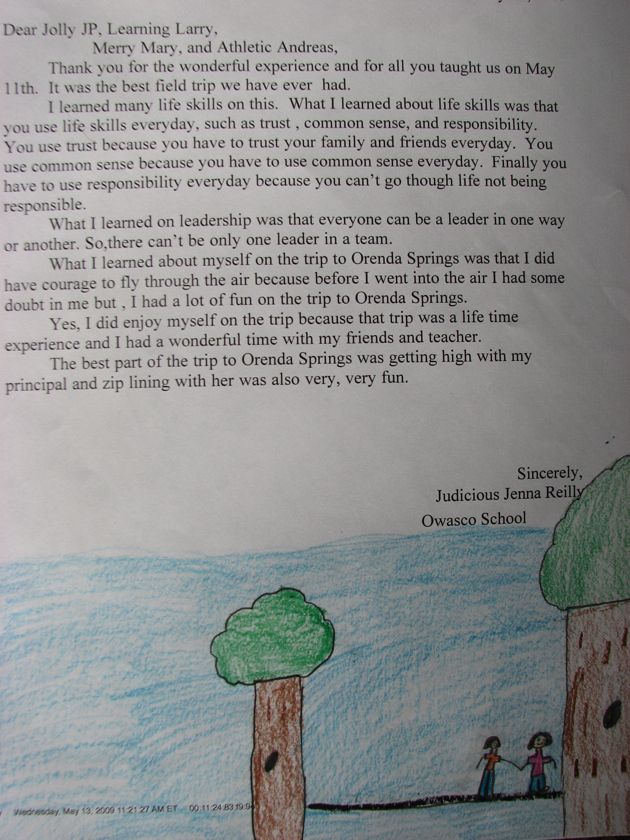 Dear Jolly JP, Learning Larry,
Merry Mary, and Athletic Andreas,
Thank you for the wonderful experience and for all you taught us on May
11th. It was the best field trip we have ever had.
I learned many life skills on this. What I learned about life skills was that
you use life skills everyday, such as trust , common sense, and responsibility.
You use trust because you have to trust your family and friends everyday. You
use common sense because you have to use common sense everyday. Finally you
have to use responsibility everyday because you can't go though life not being
responsible.
What I learned on leadership was that everyone can be a leader in one way
or another. So,there can't be only one leader in a team.
What I learned about myself on the trip to Orenda Springs was that I did
have courage to fly through the air because before I went into the air I had some
doubt in me but , I had a lot of fun on the trip to Orenda Springs.
Yes, I did enjoy myself on the trip because that trip was a life time
experience and I had a wonderful time with my friends and teacher.
The best part of the trip to Orenda Springs was getting high with my
principal and zip lining with her was also very, very fun.
Sincerely,
Judicious Jenna Reilly
Owasco School
Wednesday, May 13, 2009 11:21:27 AM ET 00:11:24:83:19:9